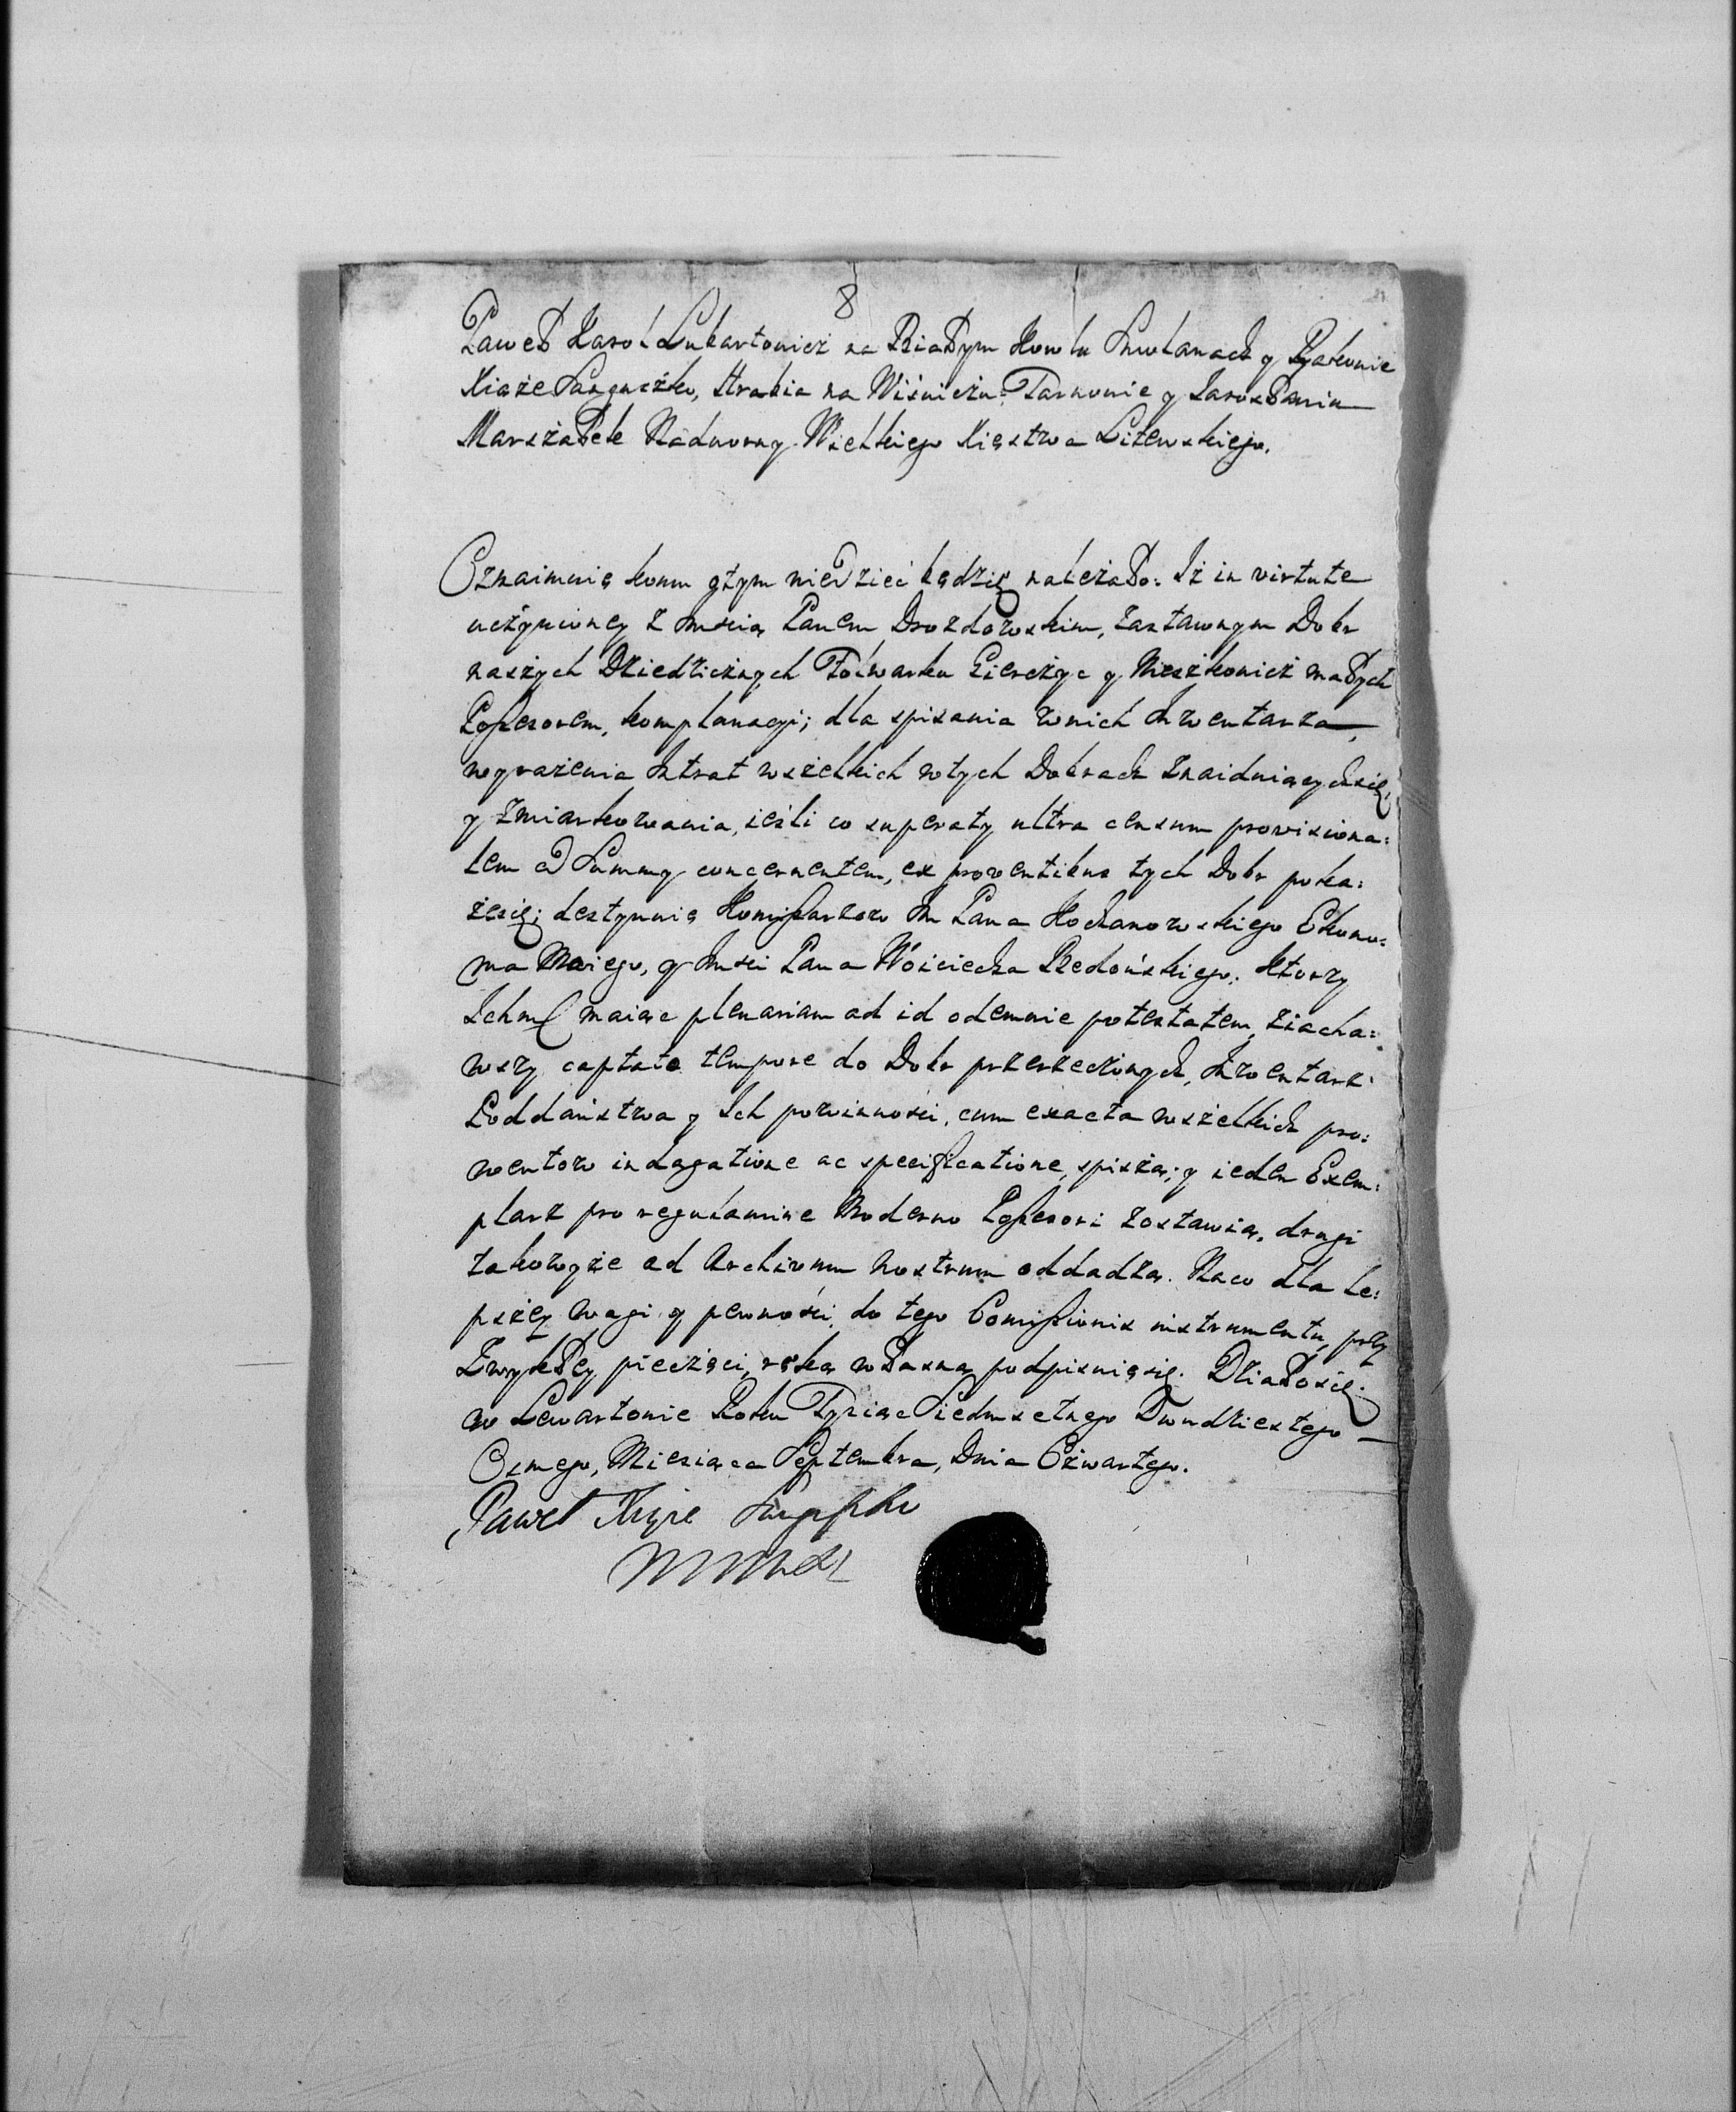 8
Paweł Karol Lubartowicz na Białym Kowlu Smolanach y Rakowie
Xiąże Sanguszko, Hrabia na Wiśniczu Tarnowie y Jarosławiu
Marszałek Nadworny Wielkiego Xięstwa Litewskiego.
Oznaimuię komu otym wiedzieć będzie należało: Iż in virtute
uczynioney z Imścią Panem Drozdowskim, zastawnym Dobr
naszych Dziedzicznych Folwarku Gierczyc y Nieszkowicz małych
Possesorem, komplanacyi; dla spisania wnich Inwentarza,
wyrażenia Intrat wszelkich wtych Dobrach znaiduiącychsię,
y zmiarkowania, ieśli co superaty ultra censum provisiona:
lem a Summy concernentem, ex proventibus tych Dobr poka:
żesię; destynuię Komissarzow Im Pana Kochanowskiego Ekono:
ma Moiego, y Imści Pana Wóyciecha Redońskiego. Ktorzy
Ichmć maiąc plenariam ad id odemnie potestatem, ziacha:
wszy captato tempore do Dobr przerzeczonych, Inwentarz
Poddaństwa y Ich powinności, cum exacta wszelkich pro:
wentow indagatione ac specificatione, spiszą; y ieden Exem:
plarz pro regulamine Moderno Possesori zostawią, drugi
takowyże ad Archivum nostrum oddadzą. Naco dla le:
pszey wagi y pewności, do tego Comissionis instrumentu, przy
Zwykłey pieczęci, ręką własną podpisuięsię. Działosię
w Lewartowie Roku Tysiąc Siedmsetnego Dwudziestego
Osmego, Miesiąca Septembra, Dnia Czwartego.
Paweł Xiąże Sanguszko